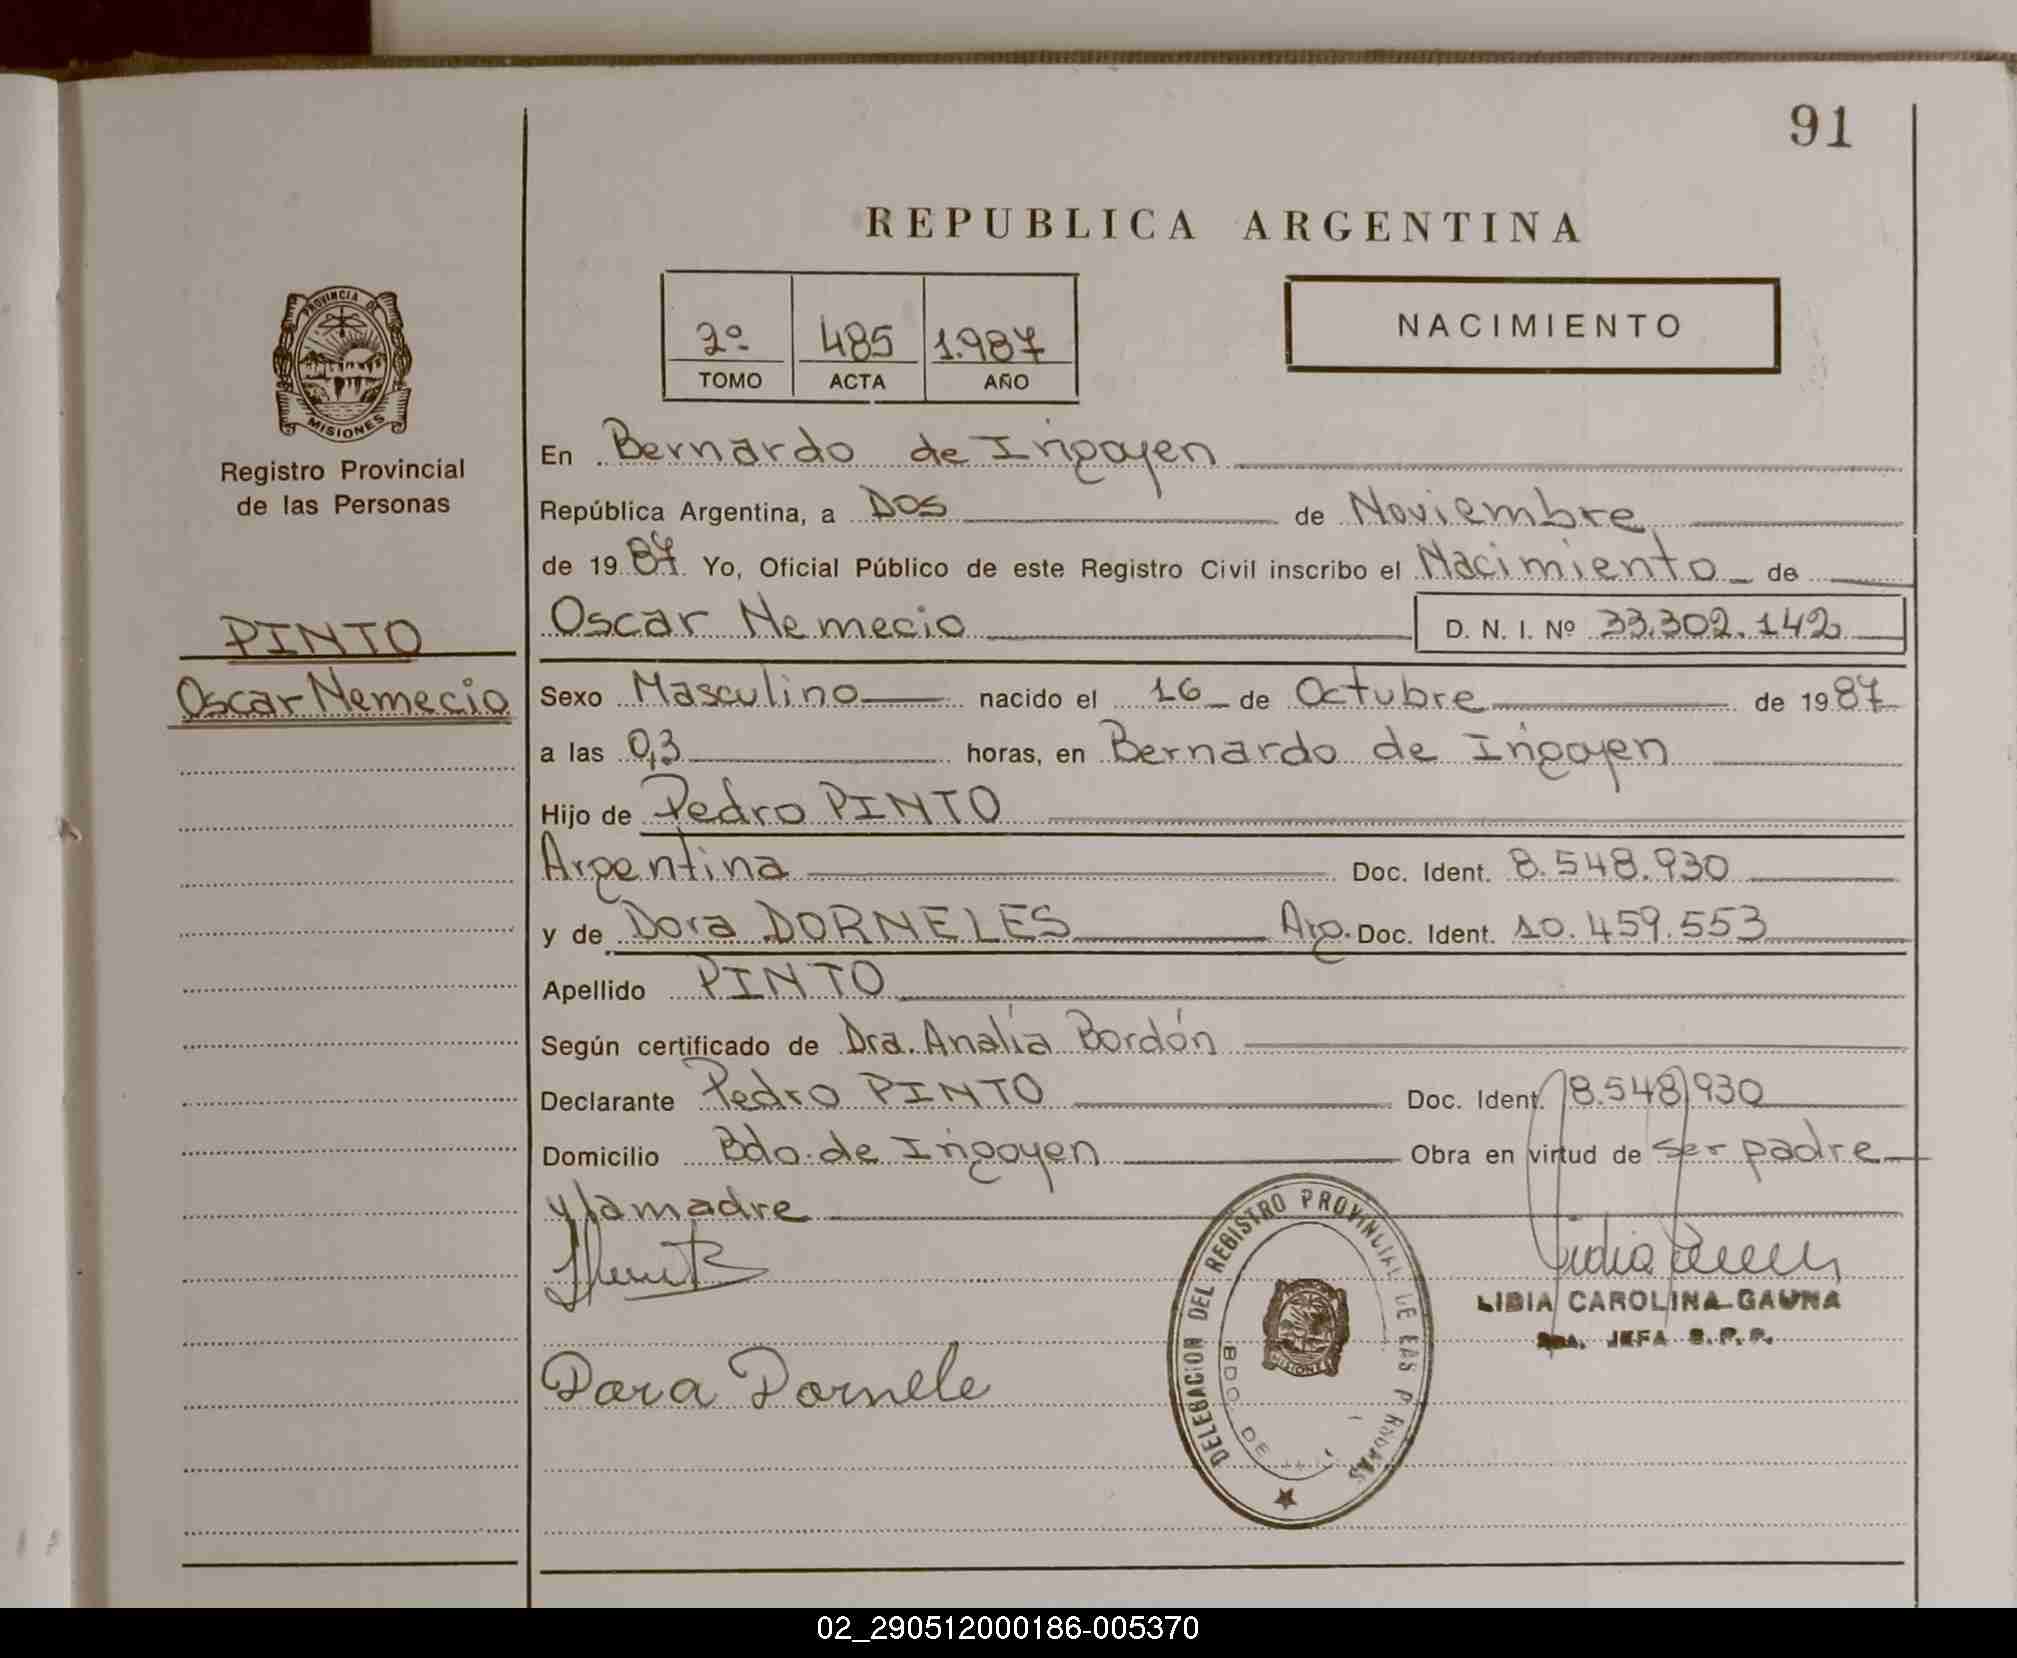 91
REPUBLICA ARGENTINA
2º 485 1.987
TOMO ACTA AÑO
NACIMIENTO
PROVINCIA DE
MISIONES
Registro Provincial
de las Personas
PINTO
Oscar Nemecio
En Bernardo de Irigoyen
República Argentina, a Dos de Noviembre
de 1987 Yo, Oficial Público de este Registro Civil inscribo el Nacimiento de
Oscar Nemecio D. N. I. Nº 33.302.142
Sexo Masculino nacido el 16 de Octubre de 1987
a las 0,3 horas, en Bernardo de Irigoyen
Hijo de Pedro PINTO
Argentina Doc. Ident. 8.548.930
y de Dora DORNELES Arg. Doc. Ident. 10.459.553
Apellido PINTO
Según certificado de Dra. Analía Bordón
Declarante Pedro PINTO Doc. Ident. 8.548.930
Domicilio Bdo. de Irigoyen Obra en virtud de ser padre
y la madre
Dora Dornele
DELEGACION DEL REGISTRO PROVINCIAL DE LAS PERSONAS
BDO. DE
MISIONES
LIBIA CAROLINA GAUNA
JEFA R.P.P.
02_290512000186-005370